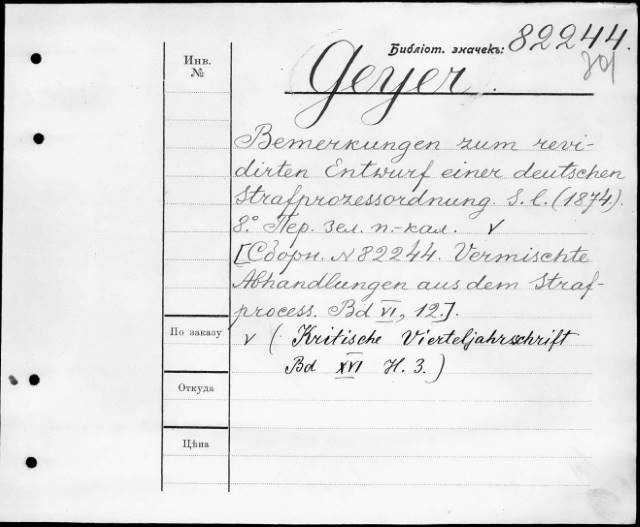 Библіот. значекъ: 82244.
Инв.
№
Geyer.
Bemerkungen zum revi-
dirten Entwurf einer deutschen
Strafprozessordnung. S. l. (1874).
8.° Пер. зел. п.-кал. v
[Сборн. N 82244. Vermischte
Abhandlungen aus dem Straf-
process. Bd VI, 12.].
По заказу
v (Kritische Vierteljahrsschrift
Bd XVI H. 3.)
Откуда
Цѣна